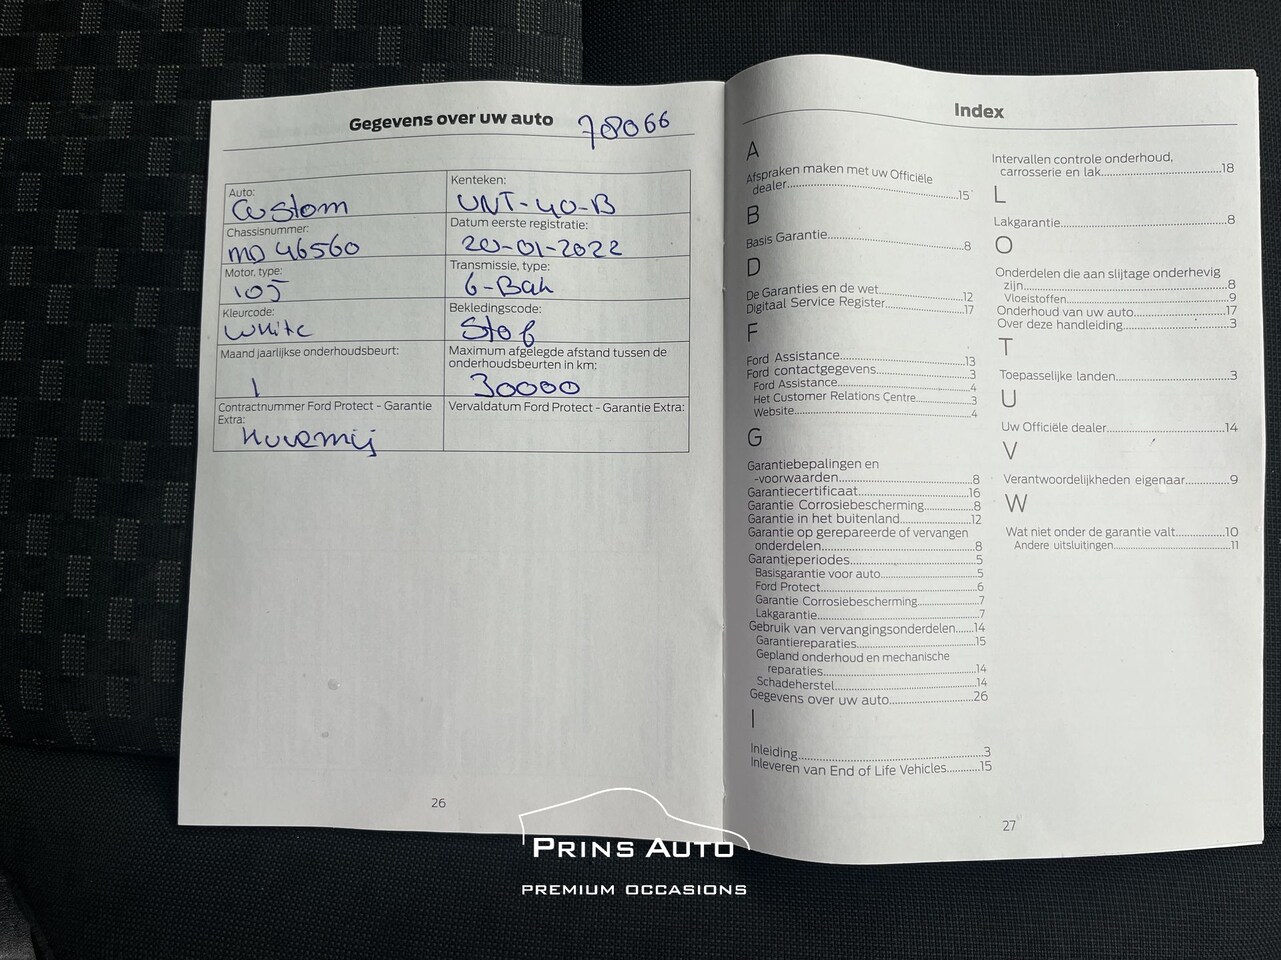 Gegevens over uw auto 78066
Auto:
Custom
Kenteken:
VNT-40-B
Chassisnummer:
MD 46560
Datum eerste registratie:
20-01-2022
Motor, type:
105
Transmissie, type:
6-Bak
Kleurcode:
White
Bekledingscode:
Stof
Maand jaarlijkse onderhoudsbeurt:
1
Maximum afgelegde afstand tussen de
onderhoudsbeurten in km:
30000
Contractnummer Ford Protect - Garantie
Extra:
Vervaldatum Ford Protect - Garantie Extra:
26
Index
A
Afspraken maken met uw Officiële
dealer...15
B
Basis Garantie...8
D
De Garanties en de wet...12
Digitaal Service Register...17
F
Ford Assistance...13
Ford contactgegevens...3
Ford Assistance...4
Het Customer Relations Centre...3
Website...4
G
Garantiebepalingen en
-voorwaarden...8
Garantiecertificaat...16
Garantie Corrosiebescherming...8
Garantie in het buitenland...12
Garantie op gerepareerde of vervangen
onderdelen...8
Garantieperiodes...5
Basisgarantie voor auto...5
Ford Protect...6
Garantie Corrosiebescherming...7
Lakgarantie...7
Gebruik van vervangingsonderdelen...14
Garantiereparaties...15
Gepland onderhoud en mechanische
reparaties...14
Schadeherstel...14
Gegevens over uw auto...26
I
Inleiding...3
Inleveren van End of Life Vehicles...15
Intervallen controle onderhoud,
carrosserie en lak...18
L
Lakgarantie...8
O
Onderdelen die aan slijtage onderhevig
zijn...8
Vloeistoffen...9
Onderhoud van uw auto...17
Over deze handleiding...3
T
Toepasselijke landen...3
U
Uw Officiële dealer...14
V
Verantwoordelijkheden eigenaar...9
W
Wat niet onder de garantie valt...10
Andere uitsluitingen...11
27
PRINS AUTO
PREMIUM OCCASIONS